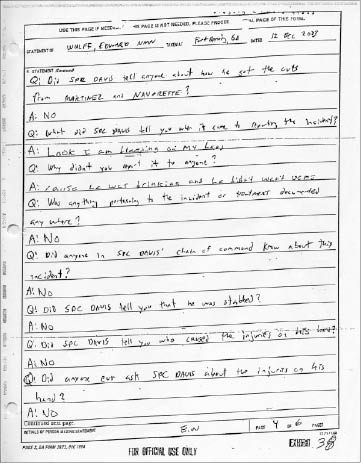 USE THIS PAGE IF NEEDED. THIS PAGE IS NOT NEEDED, PLEASE PROCEED FINAL PAGE OF THIS FORM.
STATEMENT OF WULFF, EDWARD TAKEN AT Fort Benning, GA DATED 12 DEC
STATEMENT (Continued)
Q: Did SPC DAVIS tell anyone about how he got the cuts
from MARTINEZ and NAVARRETTE?
A: NO
Q: What did SPC DAVIS tell you when it came to reporting the incident?
A: LOOK I am bleeding on MY head
Q: Why didn't you report it to anyone?
A: cause he was drinking and he didn't want
Q: Was anything pertaining to the incident or treatment documented
any where?
A: No
Q: Did anyone in SPC DAVIS' chain of command know about this
incident?
A: NO
Q: DID SPC DAVIS tell you that he was stabbed?
A: NO
Q: Did SPC DAVIS tell you who caused the injuries on his hand?
A: NO
Q: Did anyone ever ask SPC DAVIS about the injuries on his
hand?
A: NO
Continued next page
INITIALS OF PERSON MAKING STATEMENT
E.W
PAGE 4 OF 6 PAGES
PAGE 2, DA FORM 2823, DEC 1998
FOR OFFICIAL USE ONLY
EXHIBIT 38